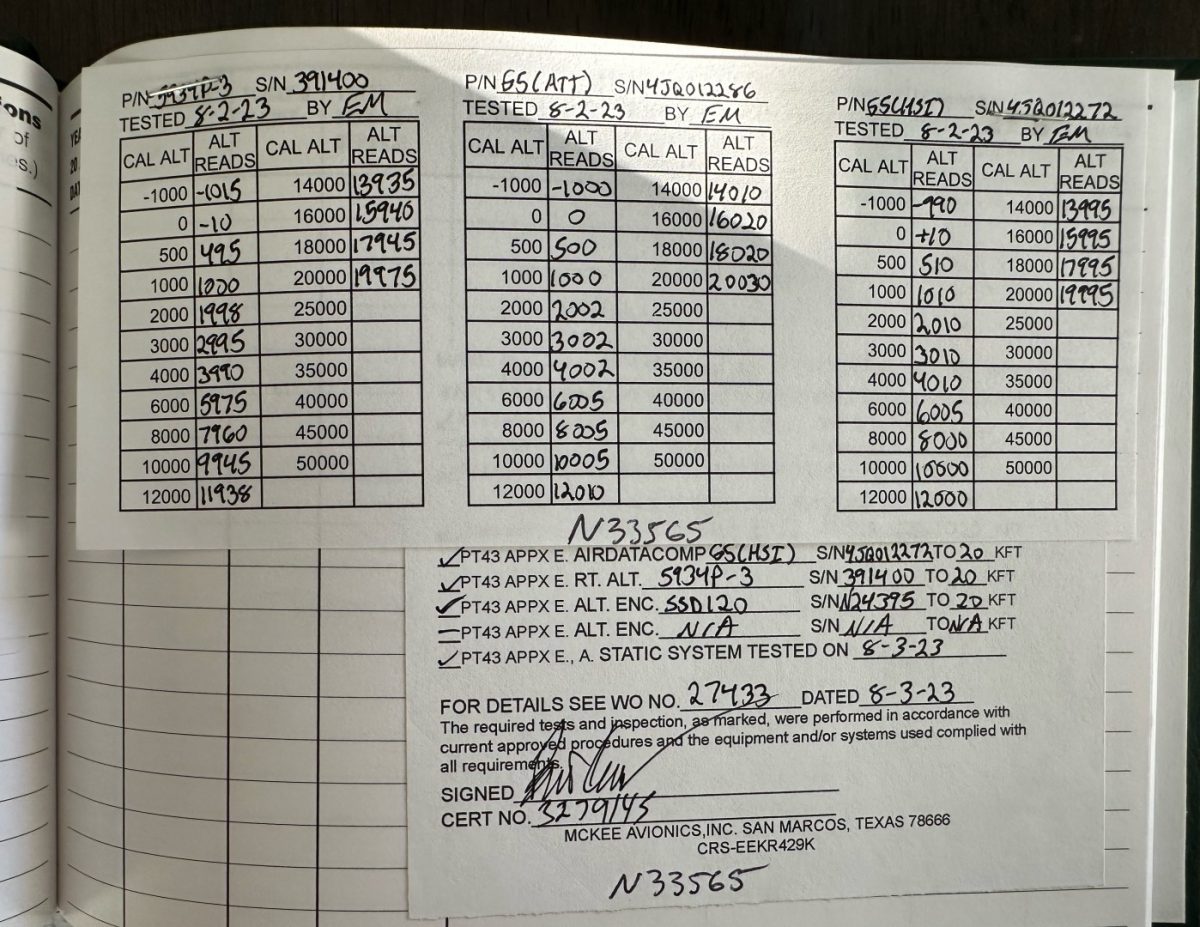 ons
of
es.)
YEA
20
DAT
P/N 5934P-3 S/N 391400
TESTED 8-2-23 BY EM
CAL ALT ALT READS CAL ALT ALT READS
-1000 -1015 14000 13935
0 -10 16000 15940
500 495 18000 17945
1000 1000 20000 19975
2000 1998 25000
3000 2995 30000
4000 3990 35000
6000 5975 40000
8000 7960 45000
10000 9945 50000
12000 11938
P/N G5(ATT) S/N 4JQ012286
TESTED 8-2-23 BY EM
CAL ALT ALT READS CAL ALT ALT READS
-1000 -1000 14000 14010
0 0 16000 16020
500 500 18000 18020
1000 1000 20000 20030
2000 2002 25000
3000 3002 30000
4000 4002 35000
6000 6005 40000
8000 8005 45000
10000 10005 50000
12000 12010
P/N G5(HSI) S/N 4JQ012272
TESTED 8-2-23 BY EM
CAL ALT ALT READS CAL ALT ALT READS
-1000 -990 14000 13995
0 +10 16000 15995
500 510 18000 17995
1000 1010 20000 19995
2000 2010 25000
3000 3010 30000
4000 4010 35000
6000 6005 40000
8000 8000 45000
10000 10000 50000
12000 12000
N33565
✓PT43 APPX E. AIRDATACOMP G5(HSI) S/N 4JQ012272 TO 20 KFT
✓PT43 APPX E. RT. ALT. 5934P-3 S/N 391400 TO 20 KFT
✓PT43 APPX E. ALT. ENC. SSD120 S/N N24395 TO 20 KFT
—PT43 APPX E. ALT. ENC. N/A S/N N/A TO N/A KFT
✓PT43 APPX E., A. STATIC SYSTEM TESTED ON 8-3-23
FOR DETAILS SEE WO NO. 27433 DATED 8-3-23
The required tests and inspection, as marked, were performed in accordance with
current approved procedures and the equipment and/or systems used complied with
all requirements.
SIGNED
CERT NO. 3279145
MCKEE AVIONICS,INC. SAN MARCOS, TEXAS 78666
CRS-EEKR429K
N33565